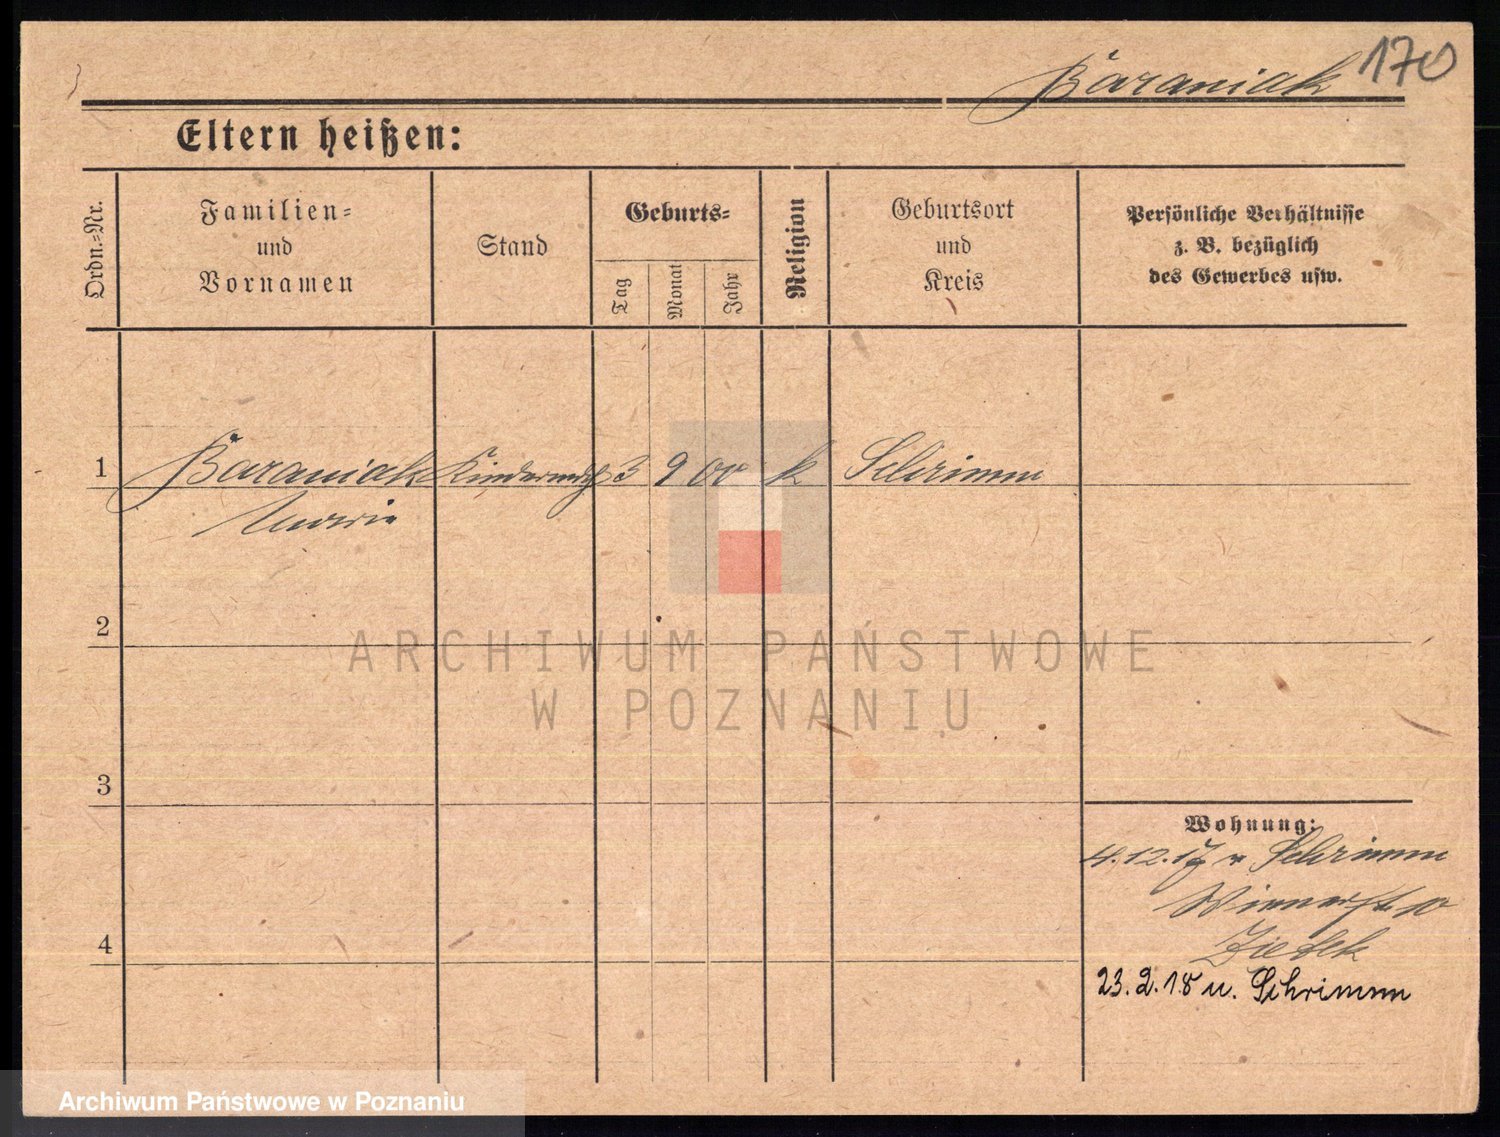 Baraniak 170
Eltern heißen:
Ordn.-Nr.
Familien-
und
Vornamen
Stand
Geburts-
Tag
Monat
Jahr
Religion
Geburtsort
und
Kreis
Persönliche Verhältnisse
z. B. bezüglich
des Gewerbes usw.
1 Baraniak 3 9 00 k Schrimm
Maria
2
3
4
Wohnung:
4.12.17 v Schrimm
10
23.2.18 u. Schrimm
ARCHIWUM PAŃSTWOWE
W POZNANIU
Archiwum Państwowe w Poznaniu